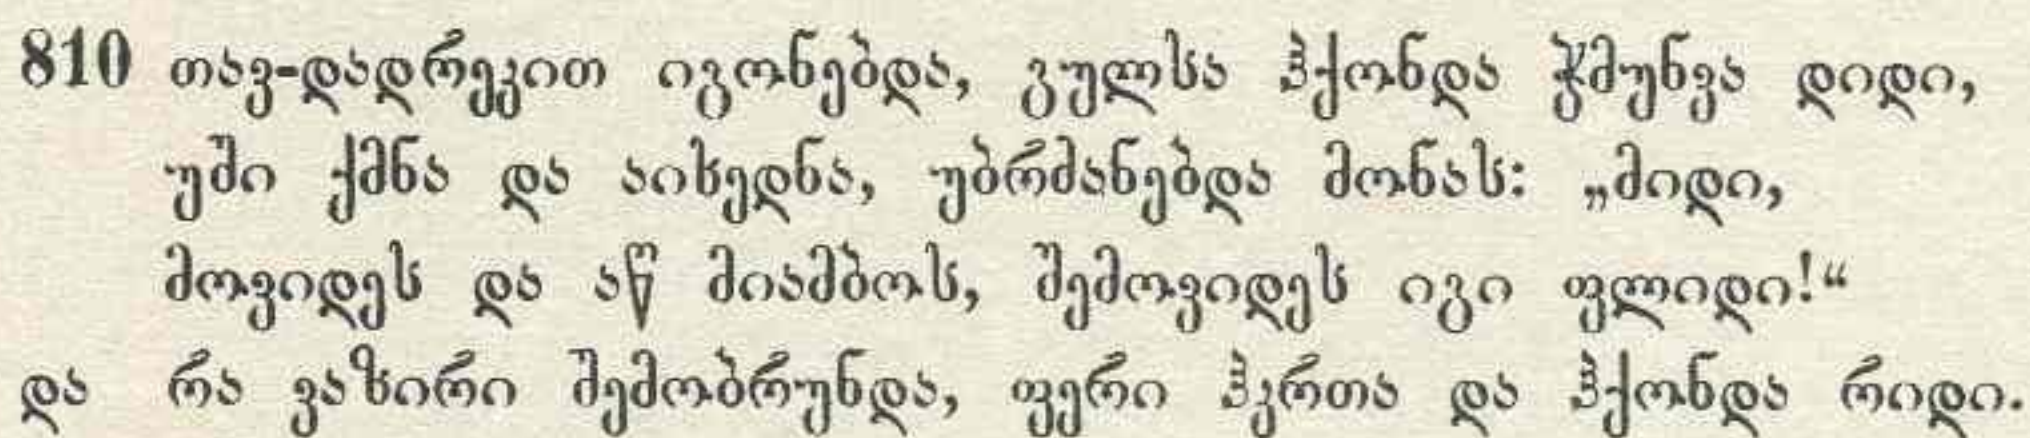 810 თავ-დადრეკით იგონებდა, გულსა ჰქონდა ჭმუნვა დიდი,
უში ქმნა და აიხედნა, უბრძანებდა მონას: „მიდი,
მოვიდეს და აწ მიამბოს, შემოვიდეს იგი ფლიდი!“
და რა ვაზირი შემობრუნდა, ფერი ჰკრთა და ჰქონდა რიდი.